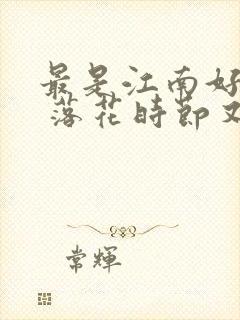 最是江南好
落花时节又
常輝